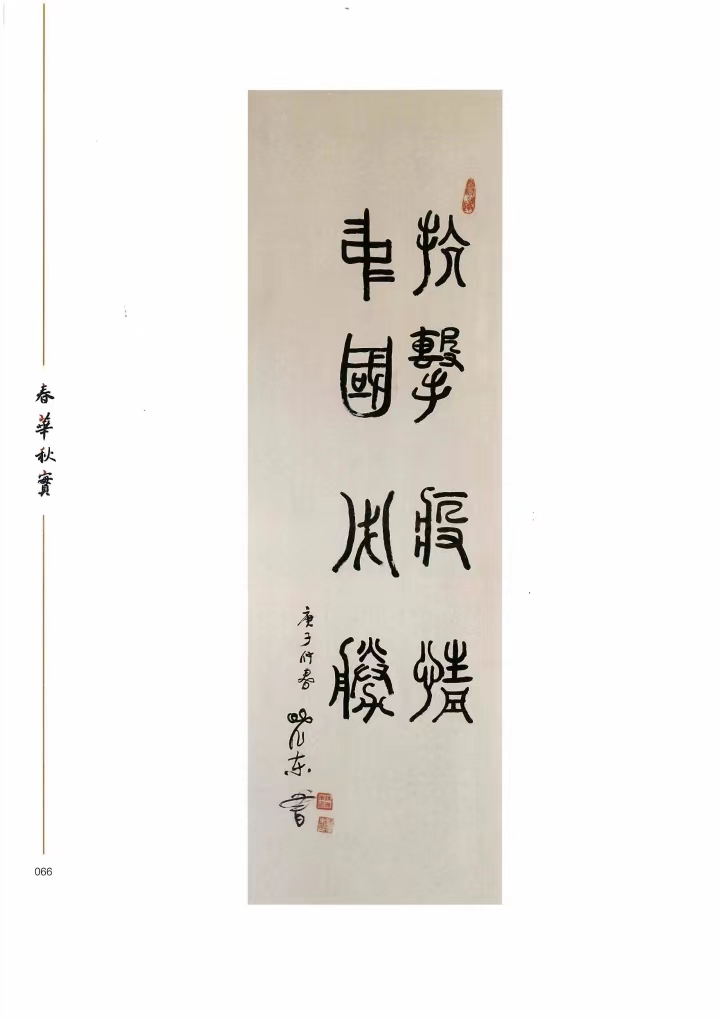 抗擊疫情
中國必勝
庚子仲春
东書
春華秋實
066